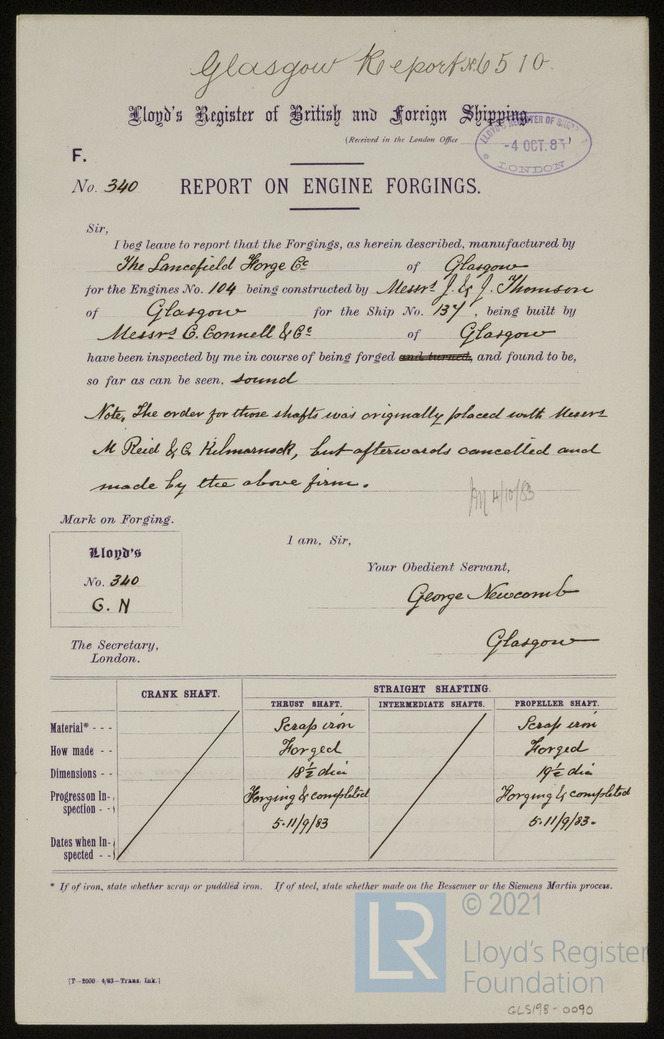 Glasgow Report No 6510
Lloyd's Register of British and Foreign Shipping
(Received in the London Office
LLOYD'S REGISTER OF
-4 OCT. 83
LONDON
F.
No. 340 REPORT ON ENGINE FORGINGS.
Sir,
I beg leave to report that the Forgings, as herein described, manufactured by
The Lancefield Forge Co of Glasgow
for the Engines No. 104 being constructed by Messrs J. & J. Thomson
of Glasgow for the Ship No. 137, being built by
Messrs C. Connell & Co of Glasgow
have been inspected by me in course of being forged and turned, and found to be,
so far as can be seen, sound
Note, The order for those shafts was originally placed with Messrs
M Reid & Co Kilmarnock, but afterwards cancelled and
made by the above firm.
4/10/83
Mark on Forging.
Lloyd's
No. 340
G. N
I am, Sir,
Your Obedient Servant,
George Newcomb
Glasgow
The Secretary,
London.
CRANK SHAFT. STRAIGHT SHAFTING.
THRUST SHAFT. INTERMEDIATE SHAFTS. PROPELLER SHAFT.
Material* - - - Scrap iron Scrap iron
How made - - Forged Forged
Dimensions - - 18½ dia 19½ dia
Progress on In- Forging & completed Forging & completed
spection - -
5.11/9/83 5.11/9/83.
Dates when In-
spected - -
* If of iron, state whether scrap or puddled iron. If of steel, state whether made on the Bessemer or the Siemens Martin process.
LR
© 2021
Lloyd's Register
Foundation
[T—2000—4/83—Trans. Ink.]
GLS198-0090